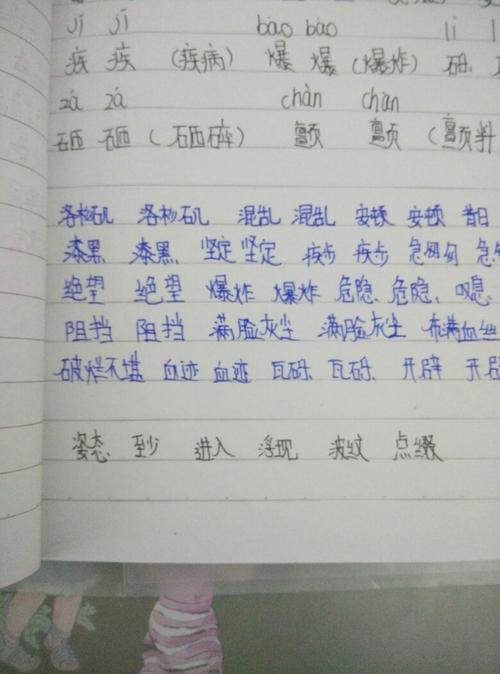 jí jí bào bào lì
疾 疾 (疾病) 爆 爆 (爆炸) 砾
zá zá chàn chàn
砸 砸 (砸碎) 颤 颤 (颤抖
洛杉矶 洛杉矶 混乱 混乱 安顿 安顿 昔日
漆黑 漆黑 坚定 坚定 疾步 疾步 急匆匆 急
绝望 绝望 爆炸 爆炸 危险 危险 叹息
阻挡 阻挡 满脸灰尘 满脸灰尘 布满血丝
破烂不堪 血迹 血迹 瓦砾 瓦砾 开辟 开辟
姿态 至少 进入 浮现 波纹 点缀